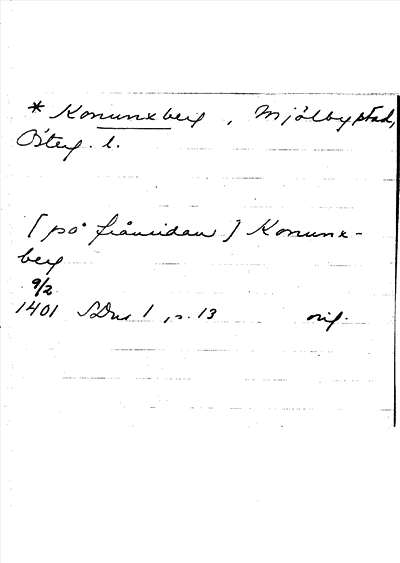 * Konunxberg, Mjölby stad,
Österg. l.
[på frånsidan] Konunx-
berg
9/2
1401 SDns 1, s. 13 orig.